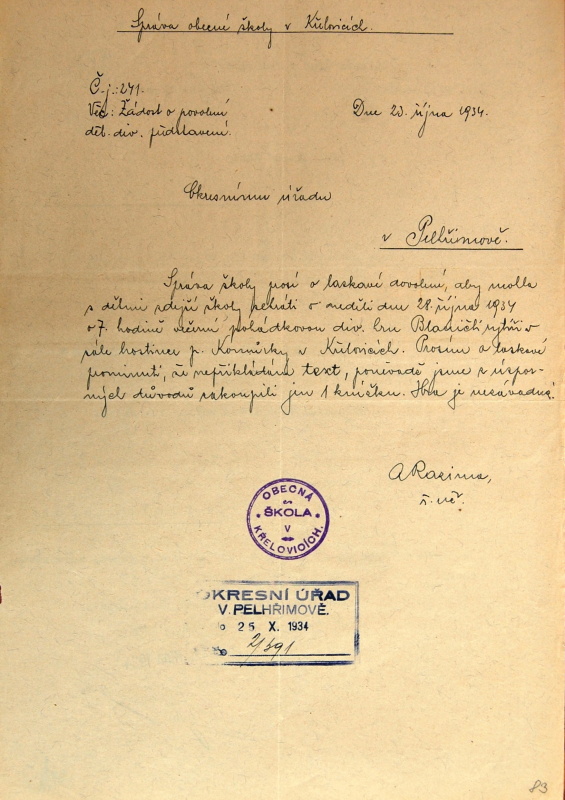 Správa obecné školy v Křelovicích.
Č.j.: 241.
Věc: Žádost o povolení
dět. div. představení.
Dne 23. října 1934.
Okresnímu úřadu
v Pelhřimově.
Správa školy prosí o laskavé dovolení, aby mohla
s dětmi zdejší školy sehráti v neděli dne 28. října 1934
o 7. hodině večerní pohádkovou div. hru Blaničtí rytíři v
sále hostince p. Kosmírky v Křelovicích. Prosím o laskavé
prominutí, že nepřikládám text, poněvadž jsme z úspor-
ných důvodů zakoupili jen 1 knížku. Hra je nezávadná.
ARazima,
ř. uč.
OBECNÁ
ŠKOLA
V
KŘELOVICÍCH.
OKRESNÍ ÚŘAD
V PELHŘIMOVĚ.
25 X. 1934
83